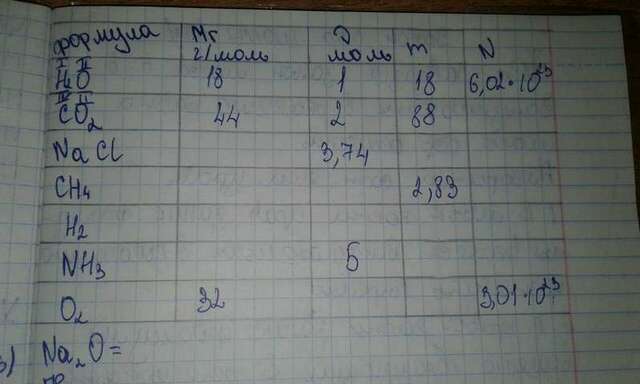 формула Mr г/моль ν моль m N
I II
H2O 18 1 18 6,02·10²³
IV II
CO2 44 2 88
NaCl 3,74
CH4 2,83
H2
NH3 5
O2 32 3,01·10²³
Na2O=